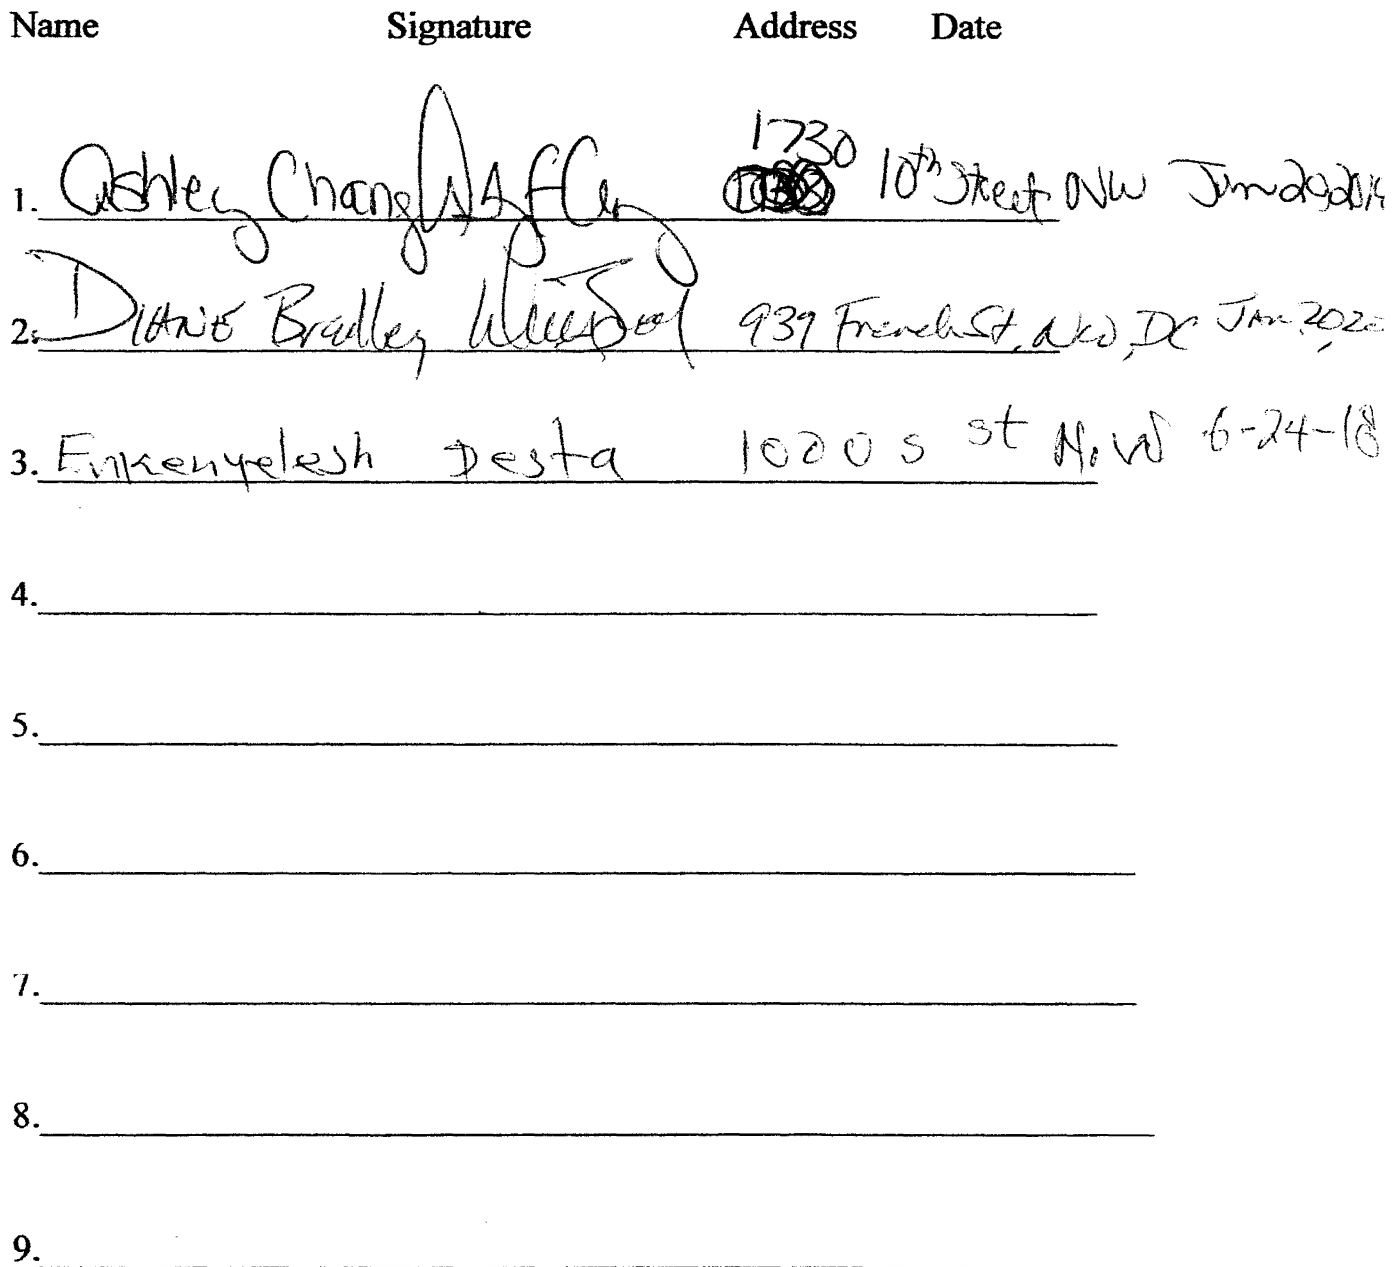 Name Signature Address Date
1730
1. Ashley Chang 10th Street NW Jun
2. Diane Bradley 939 French St. NW, DC
3. Enkenyelesh Desta 1000 S st N.W 6-24-18
4.
5.
6.
7.
8.
9.